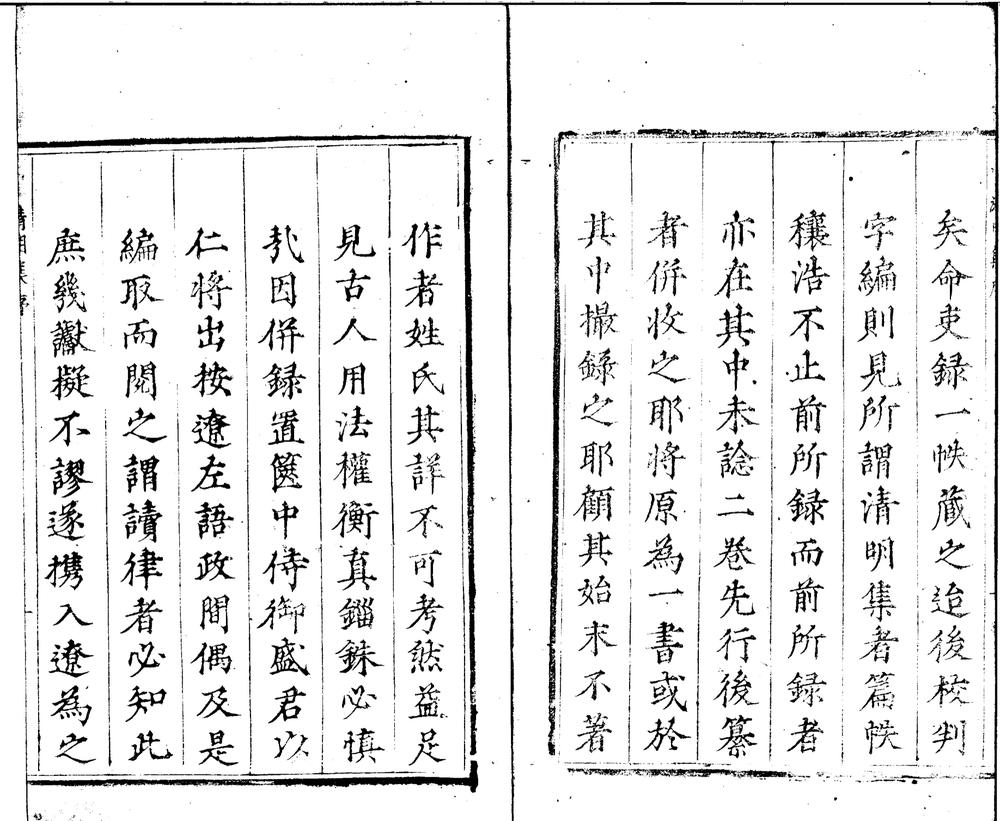 矣命吏録一帙蔵之迨後校判
字編則見所謂清明集者篇帙
穰浩不止前所録而前所録者
亦在其中未諗二卷先行後纂
者併收之耶将原為一書或於
其中撮録之耶顧其始末不著
作者姓氏其詳不可考然益足
見古人用法權衡真錙銖必慎
㢤因併録置篋中侍御盛君以
仁将出按遼左語政間偶及是
編取而閱之謂讀律者必知此
庶幾讞擬不謬遂携入遼為之
清明集序